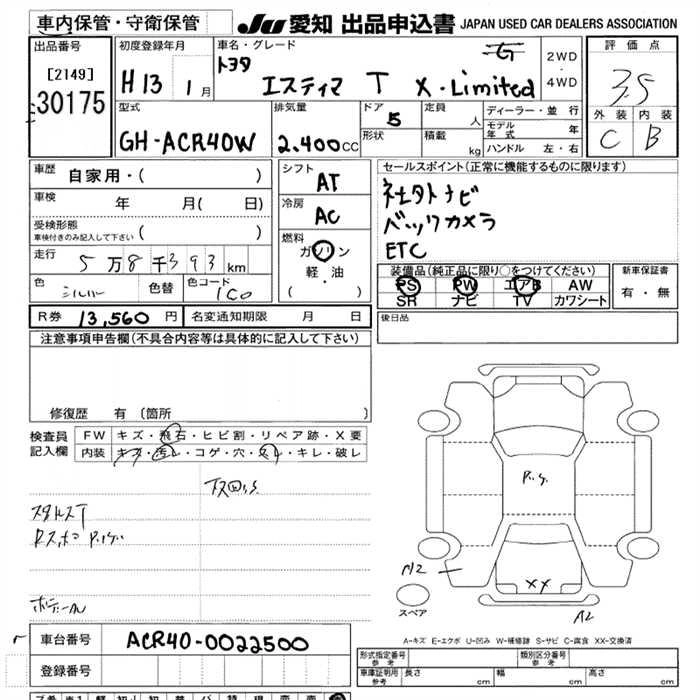 車内保管・守衛保管
JU 愛知 出品申込書 JAPAN USED CAR DEALERS ASSOCIATION
出品番号
[2149]
30175
初度登録年月
H13 1月
車名・グレード
トヨタ エスティマ T X・Limited
2WD
・
4WD
評価点
3.5
外装 内装
C B
型式
GH-ACR40W
排気量
2.400cc
ドア
5
形状
定員
人
積載
kg
ディーラー・並行
モデル年式 年
ハンドル 左・右
車歴 自家用・( )
車検 年 月( 日)
受検形態
車検付きのみ記入して下さい ( )
走行 5万8千393km
色 シルバー 色替 色コード 1C0
シフト
AT
冷房
AC
燃料
ガソリン
軽・油
( )
セールスポイント(正常に機能するものに限ります)
社外ナビ
バックカメラ
ETC
装備品(純正品に限り○をつけてください)
PS PW エアB AW
SR ナビ TV カワシート
新車保証書
有・無
R券 13,560円 名変通知期限 月 日
後日品
注意事項申告欄(不具合内容等は具体的に記入して下さい)
修復歴 有 〔箇所 〕
検査員記入欄
FW キズ・飛石・ヒビ割・リペア跡・X要
内装 キズ・汚レ・コゲ・穴・スレ・キレ・破レ
スタルスT
XX
A2
スペア
A-キズ E-エクボ U-凹み W-補修跡 S-サビ C-腐食 XX-交換済
車台番号 ACR40-0022500
登録番号
形式指定番号
参考
類別区分番号
参考
車庫証明用
参考
長さ cm 幅 cm 高さ cm